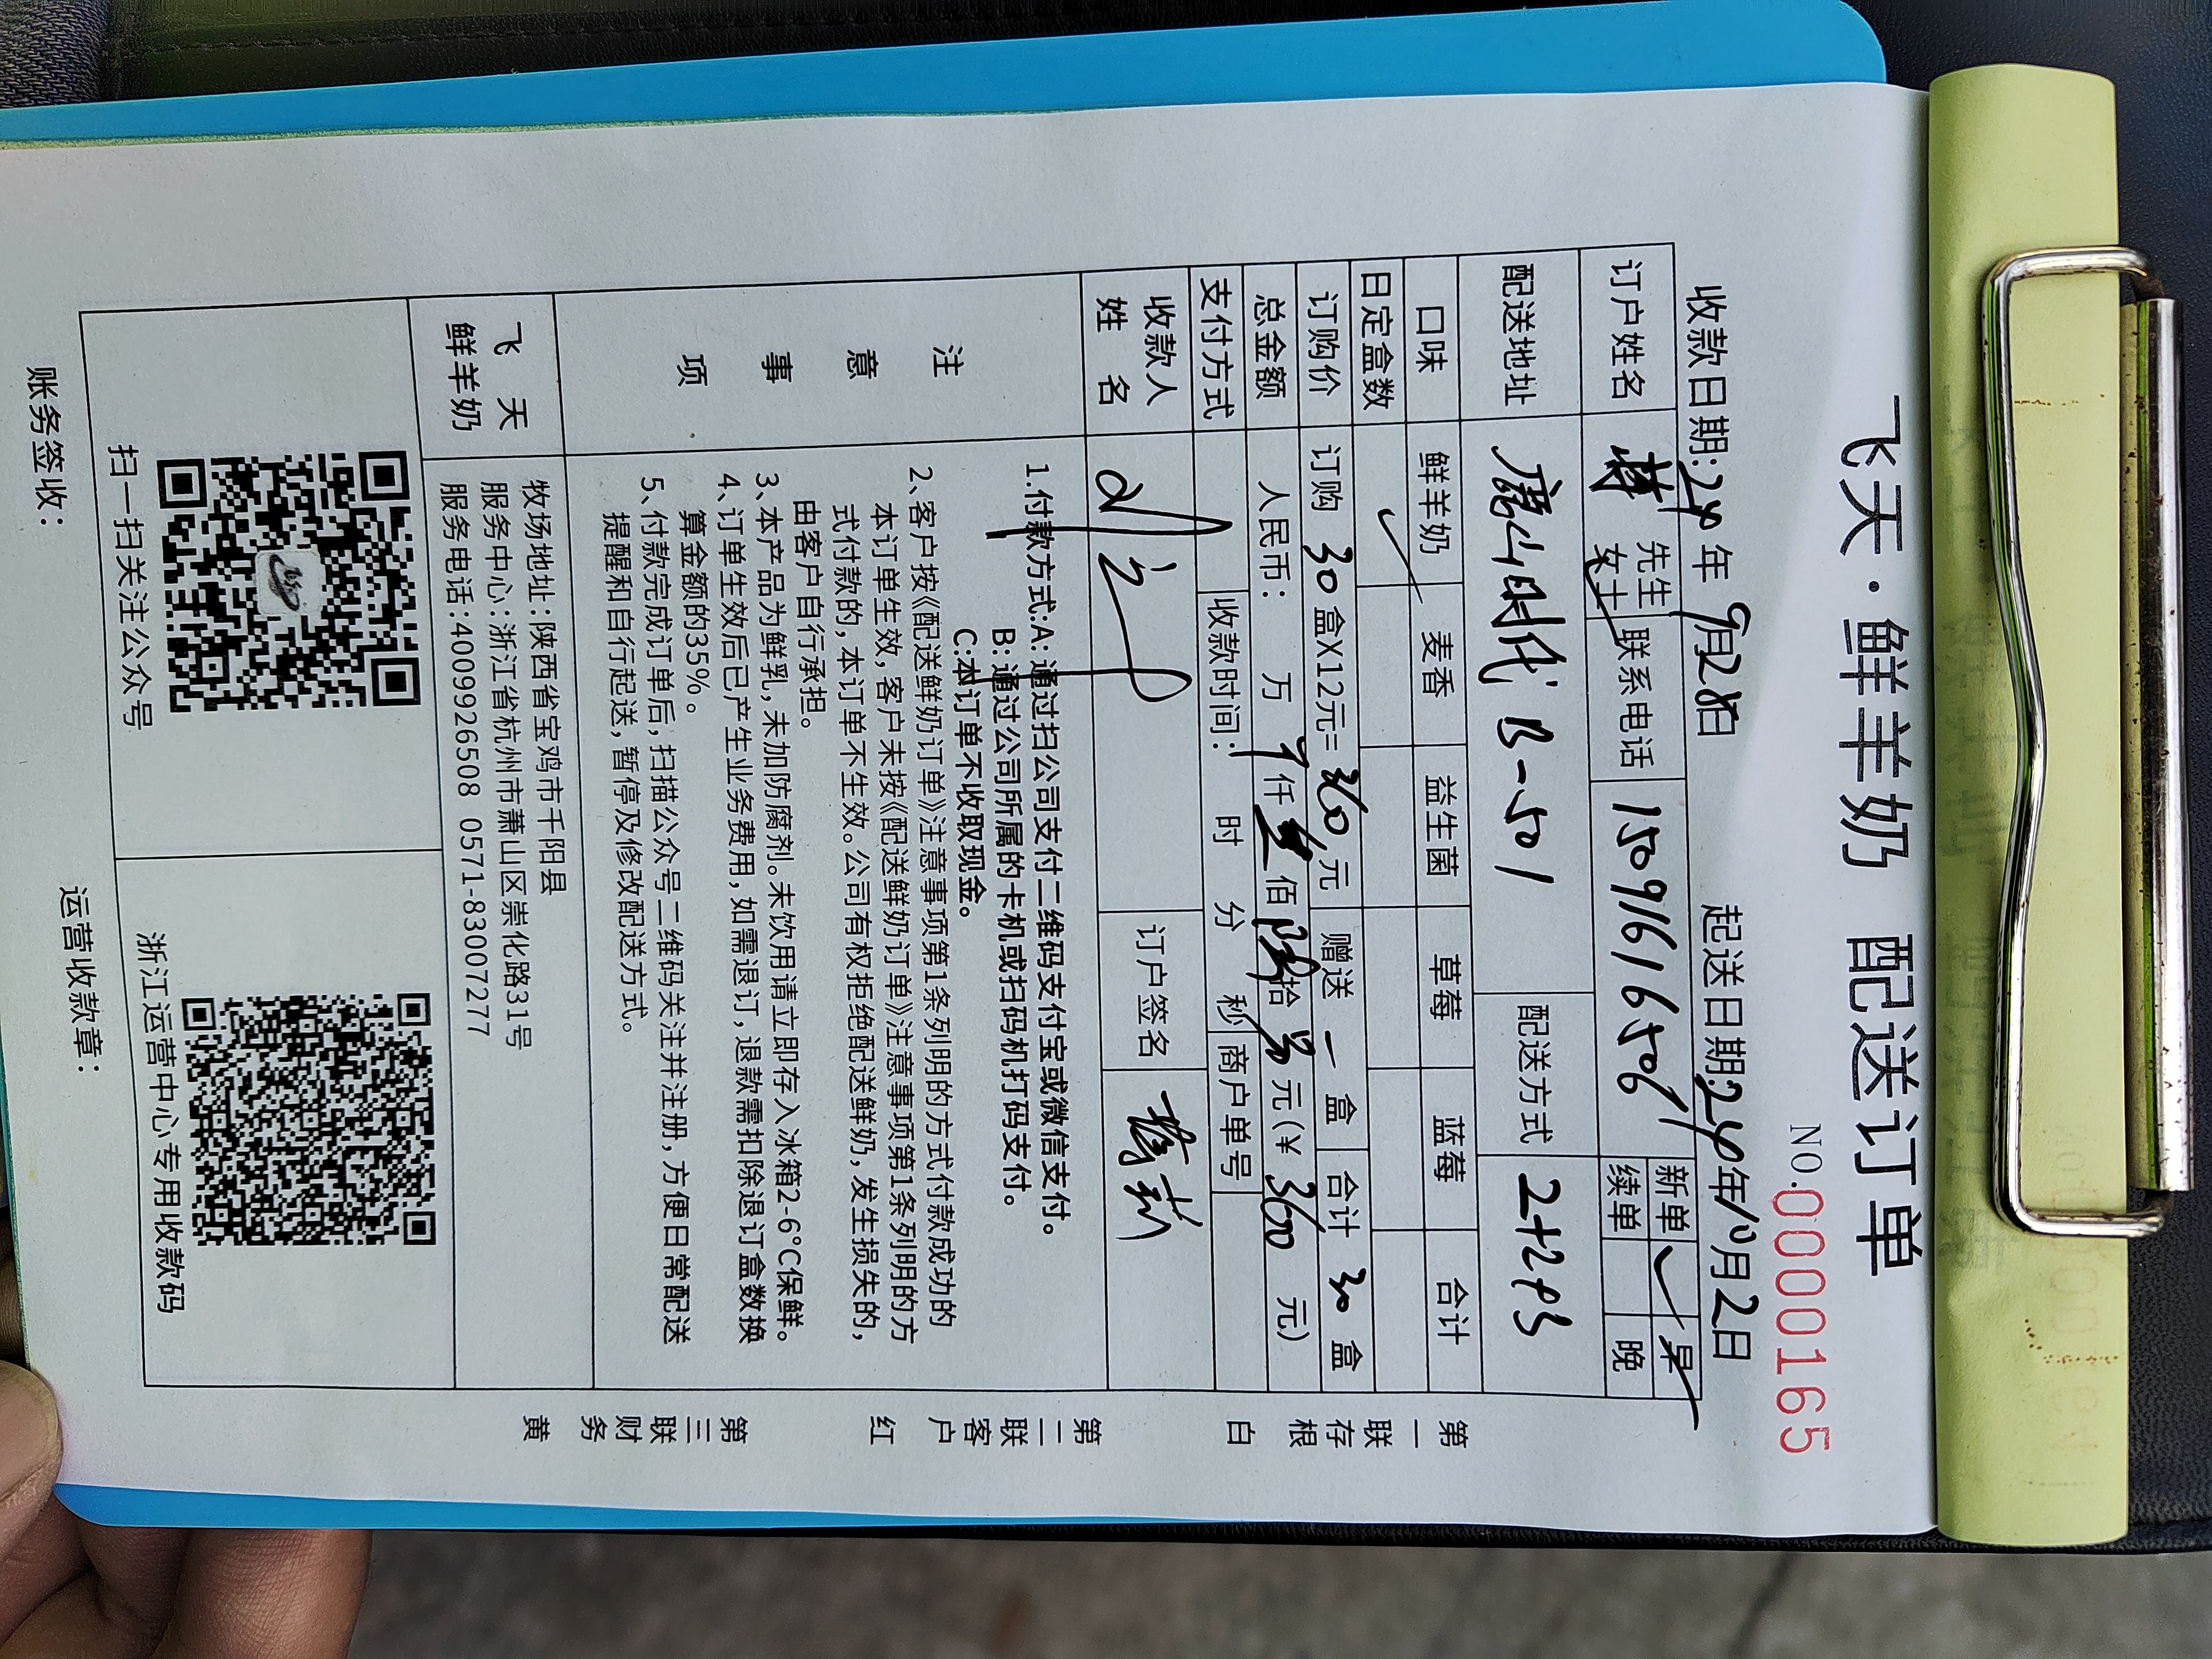 飞天·鲜羊奶 配送订单
NO.00000165
收款日期:24年9月28日 起送日期:24年10月2日
订户姓名 先生 女士 联系电话 15091616506 新单 ✓ 早
续单 晚
配送地址 唐山时代 B-501 配送方式 2+2+3
口味 鲜羊奶 麦香 益生菌 草莓 蓝莓 合计
日定盒数 ✓
订购价 订购 30 盒X12元= 360 元 赠送 一 盒 合计 30 盒
总金额 人民币: 万 仟 佰 拾 元(¥ 元)
支付方式 收款时间: 时 分 秒 商户单号
收款人
姓 名 订户签名
注意事项
1.付款方式:A:通过扫公司支付二维码支付宝或微信支付。
B:通过公司所属的卡机或扫码机打码支付。
C:本订单不收取现金。
2、客户按《配送鲜奶订单》注意事项第1条列明的方式付款成功的
本订单生效,客户未按《配送鲜奶订单》注意事项第1条列明的方
式付款的,本订单不生效。公司有权拒绝配送鲜奶,发生损失的,
由客户自行承担。
3、本产品为鲜乳,未加防腐剂。未饮用请立即存入冰箱2-6°C保鲜。
4、订单生效后已产生业务费用,如需退订,退款需扣除退订盒数换
算金额的35%。
5、付款完成订单后,扫描公众号二维码关注并注册,方便日常配送
提醒和自行起送,暂停及修改配送方式。
飞 天
鲜羊奶
牧场地址:陕西省宝鸡市千阳县
服务中心:浙江省杭州市萧山区崇化路31号
服务电话:4009926508 0571-83007277
扫一扫关注公众号 浙江运营中心专用收款码
账务签收: 运营收款章:
第一联存根 白
第二联客户 红
第三联财务 黄